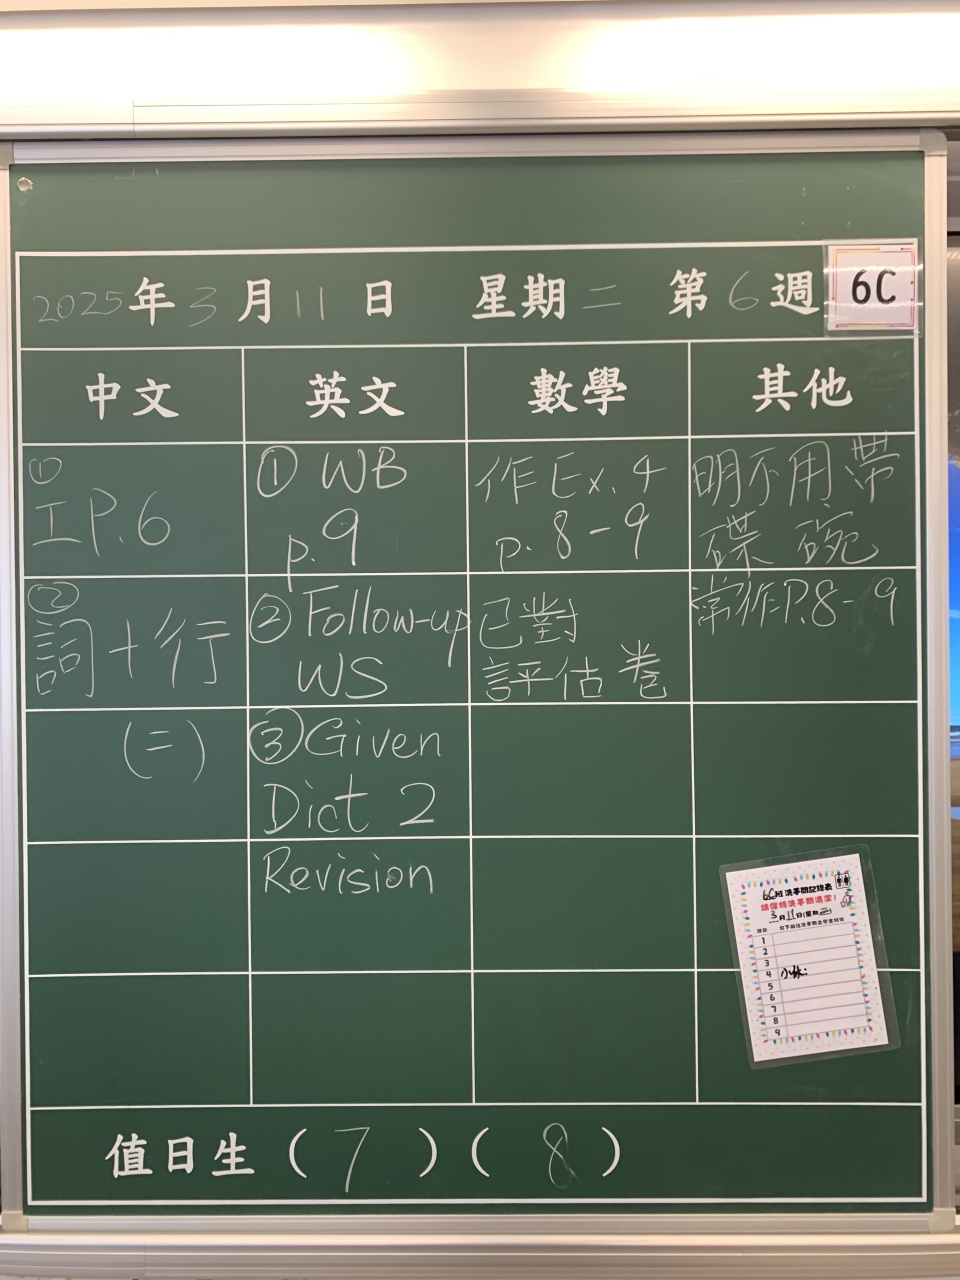 2025年3月11日 星期二 第6週 6C
中文 英文 數學 其他
①
工P.6
②
詞+行
(二)
① WB
p.9
② Follow-up
WS
③ Given
Dict 2
Revision
作Ex.4
p.8-9
已對
評估卷
明不用帶
碟 碗
常作P.8-9
6C班洗手間記錄表
請保持洗手間清潔!
3月11日(星期二)
1
2
3
4 小休:
5
6
7
8
9
值日生(7)(8)